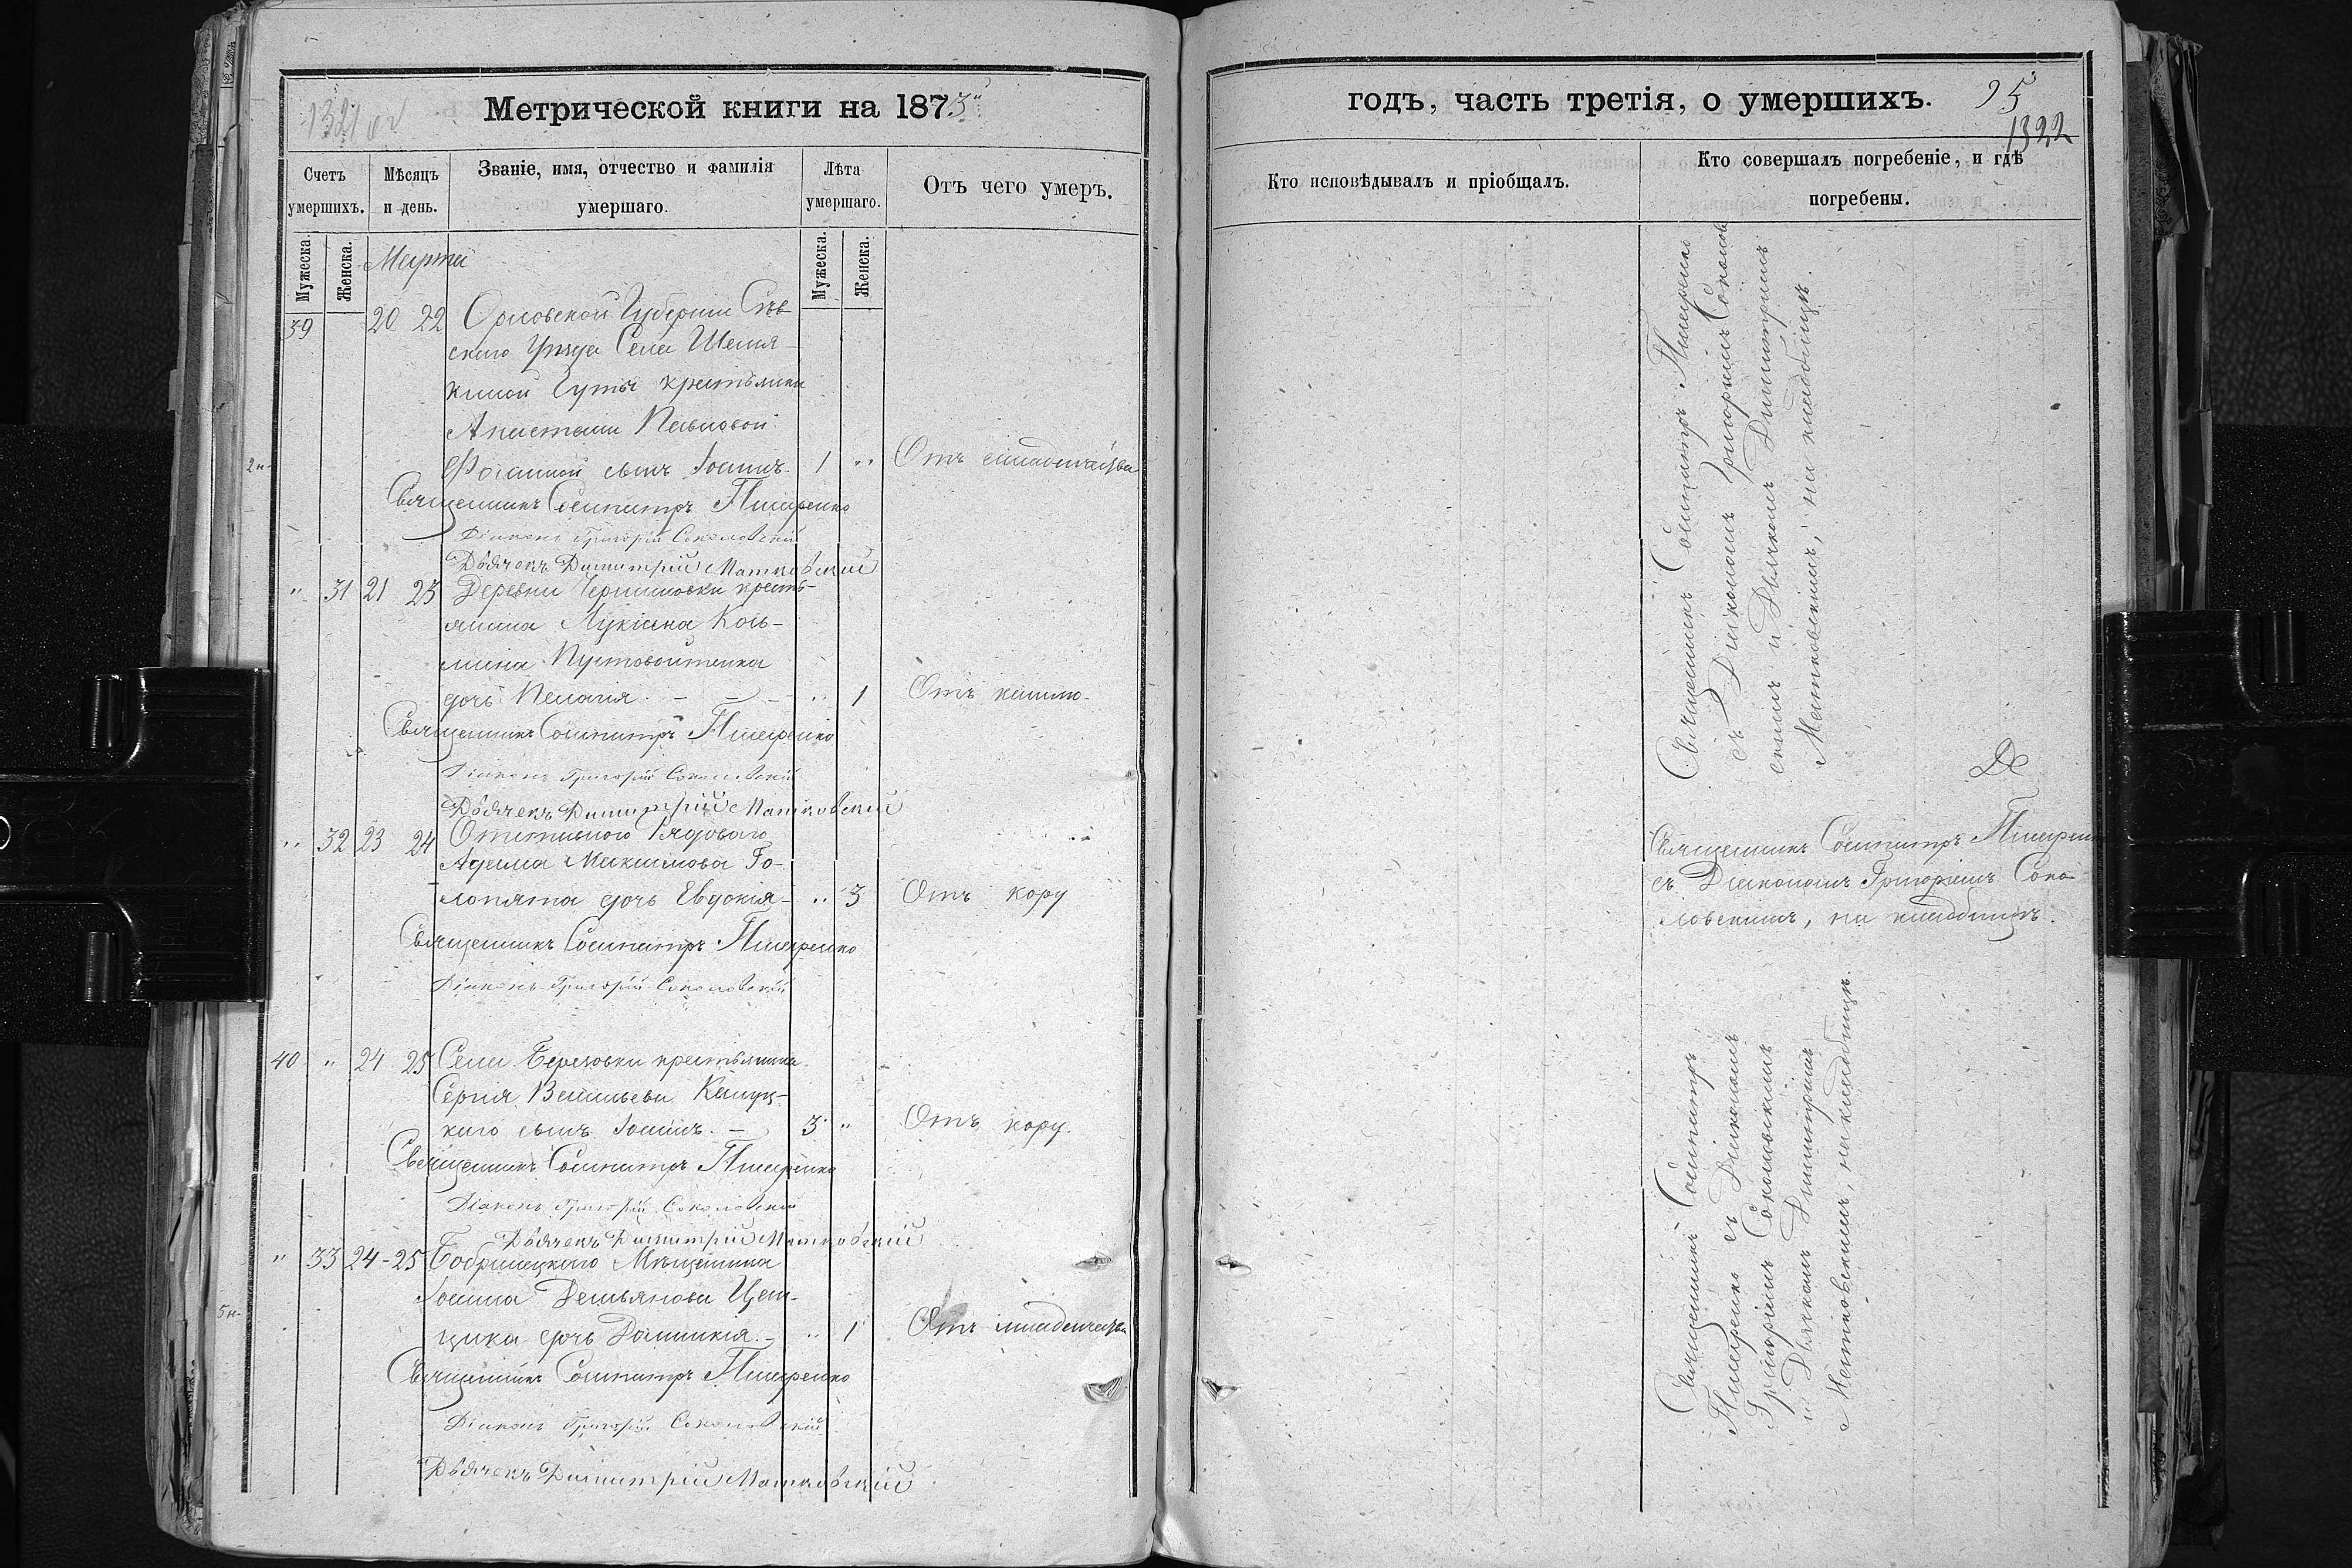 1321 об
Метрической книги на 1873
Счетъ умершихъ.
Мѣсяцъ и день.
Званіе, имя, отчество и фамилія умершаго.
Лѣта умершаго.
Отъ чего умеръ.
Мужеска.
Женска.
Мужеска.
Женска.
Марта
39 20 22 Орловской Губерніи Сѣв-
скаго Уѣзда Села Шемя-
киной Гуты крестьянки
Анастасіи Павловой
сынъ Іоаннъ. 1 " Отъ младенчества
2 н.
Священникъ Сосипатръ
Діаконъ Григорій Соколовскій
Дьячекъ Димитрій Матковскій
" 31 21 23 Деревни кресть-
янина Лукіана Кось-
мина Пустовойтенка
дочь Пелагія. - - - " 1 Отъ кашлю.
Священникъ Сосипатръ
Діаконъ Григорій Соколовскій
Дьячекъ Димитрій Матковскій
" 32 23 24 Рядового
Адама Максимова Го-
лопята дочь Евдокія - " 3 Отъ кору
Священникъ Сосипатръ
Діаконъ Григорій Соколовскій
40 " 24 25 Села Березовки крестьянина
Сергія Васильева
каго сынъ Іоаннъ. - 3 " Отъ кору.
Священникъ Сосипатръ
Діаконъ Григорій Соколовскій
Дьячекъ Димитрій Матковскій
" 33 24-25 Бобринецкаго Мѣщанина
Іоанна Демьянова
дочь Домникія. - " 1 Отъ младенчества
5 н.
Священникъ Сосипатръ
Діаконъ Григорій Соколовскій
Дьячекъ Димитрій Матковскій
годъ, часть третія, о умершихъ.
95
1322
Кто исповѣдывалъ и пріобщалъ.
Кто совершалъ погребеніе, и гдѣ
погребены.
Священникъ Сосипатръ
съ Діакономъ Григоріемъ Соколов
скимъ и Дьячкомъ Димитріемъ
Матковскимъ, на кладбищѣ.
Священникъ Сосипатръ
съ Діакономъ Григоріемъ Соко-
ловскимъ, на кладбищѣ.
Священникъ Сосипатръ
съ Діакономъ
Григоріемъ Соколовскимъ
и Дьячкомъ Димитріемъ
Матковскимъ, на кладбищѣ.